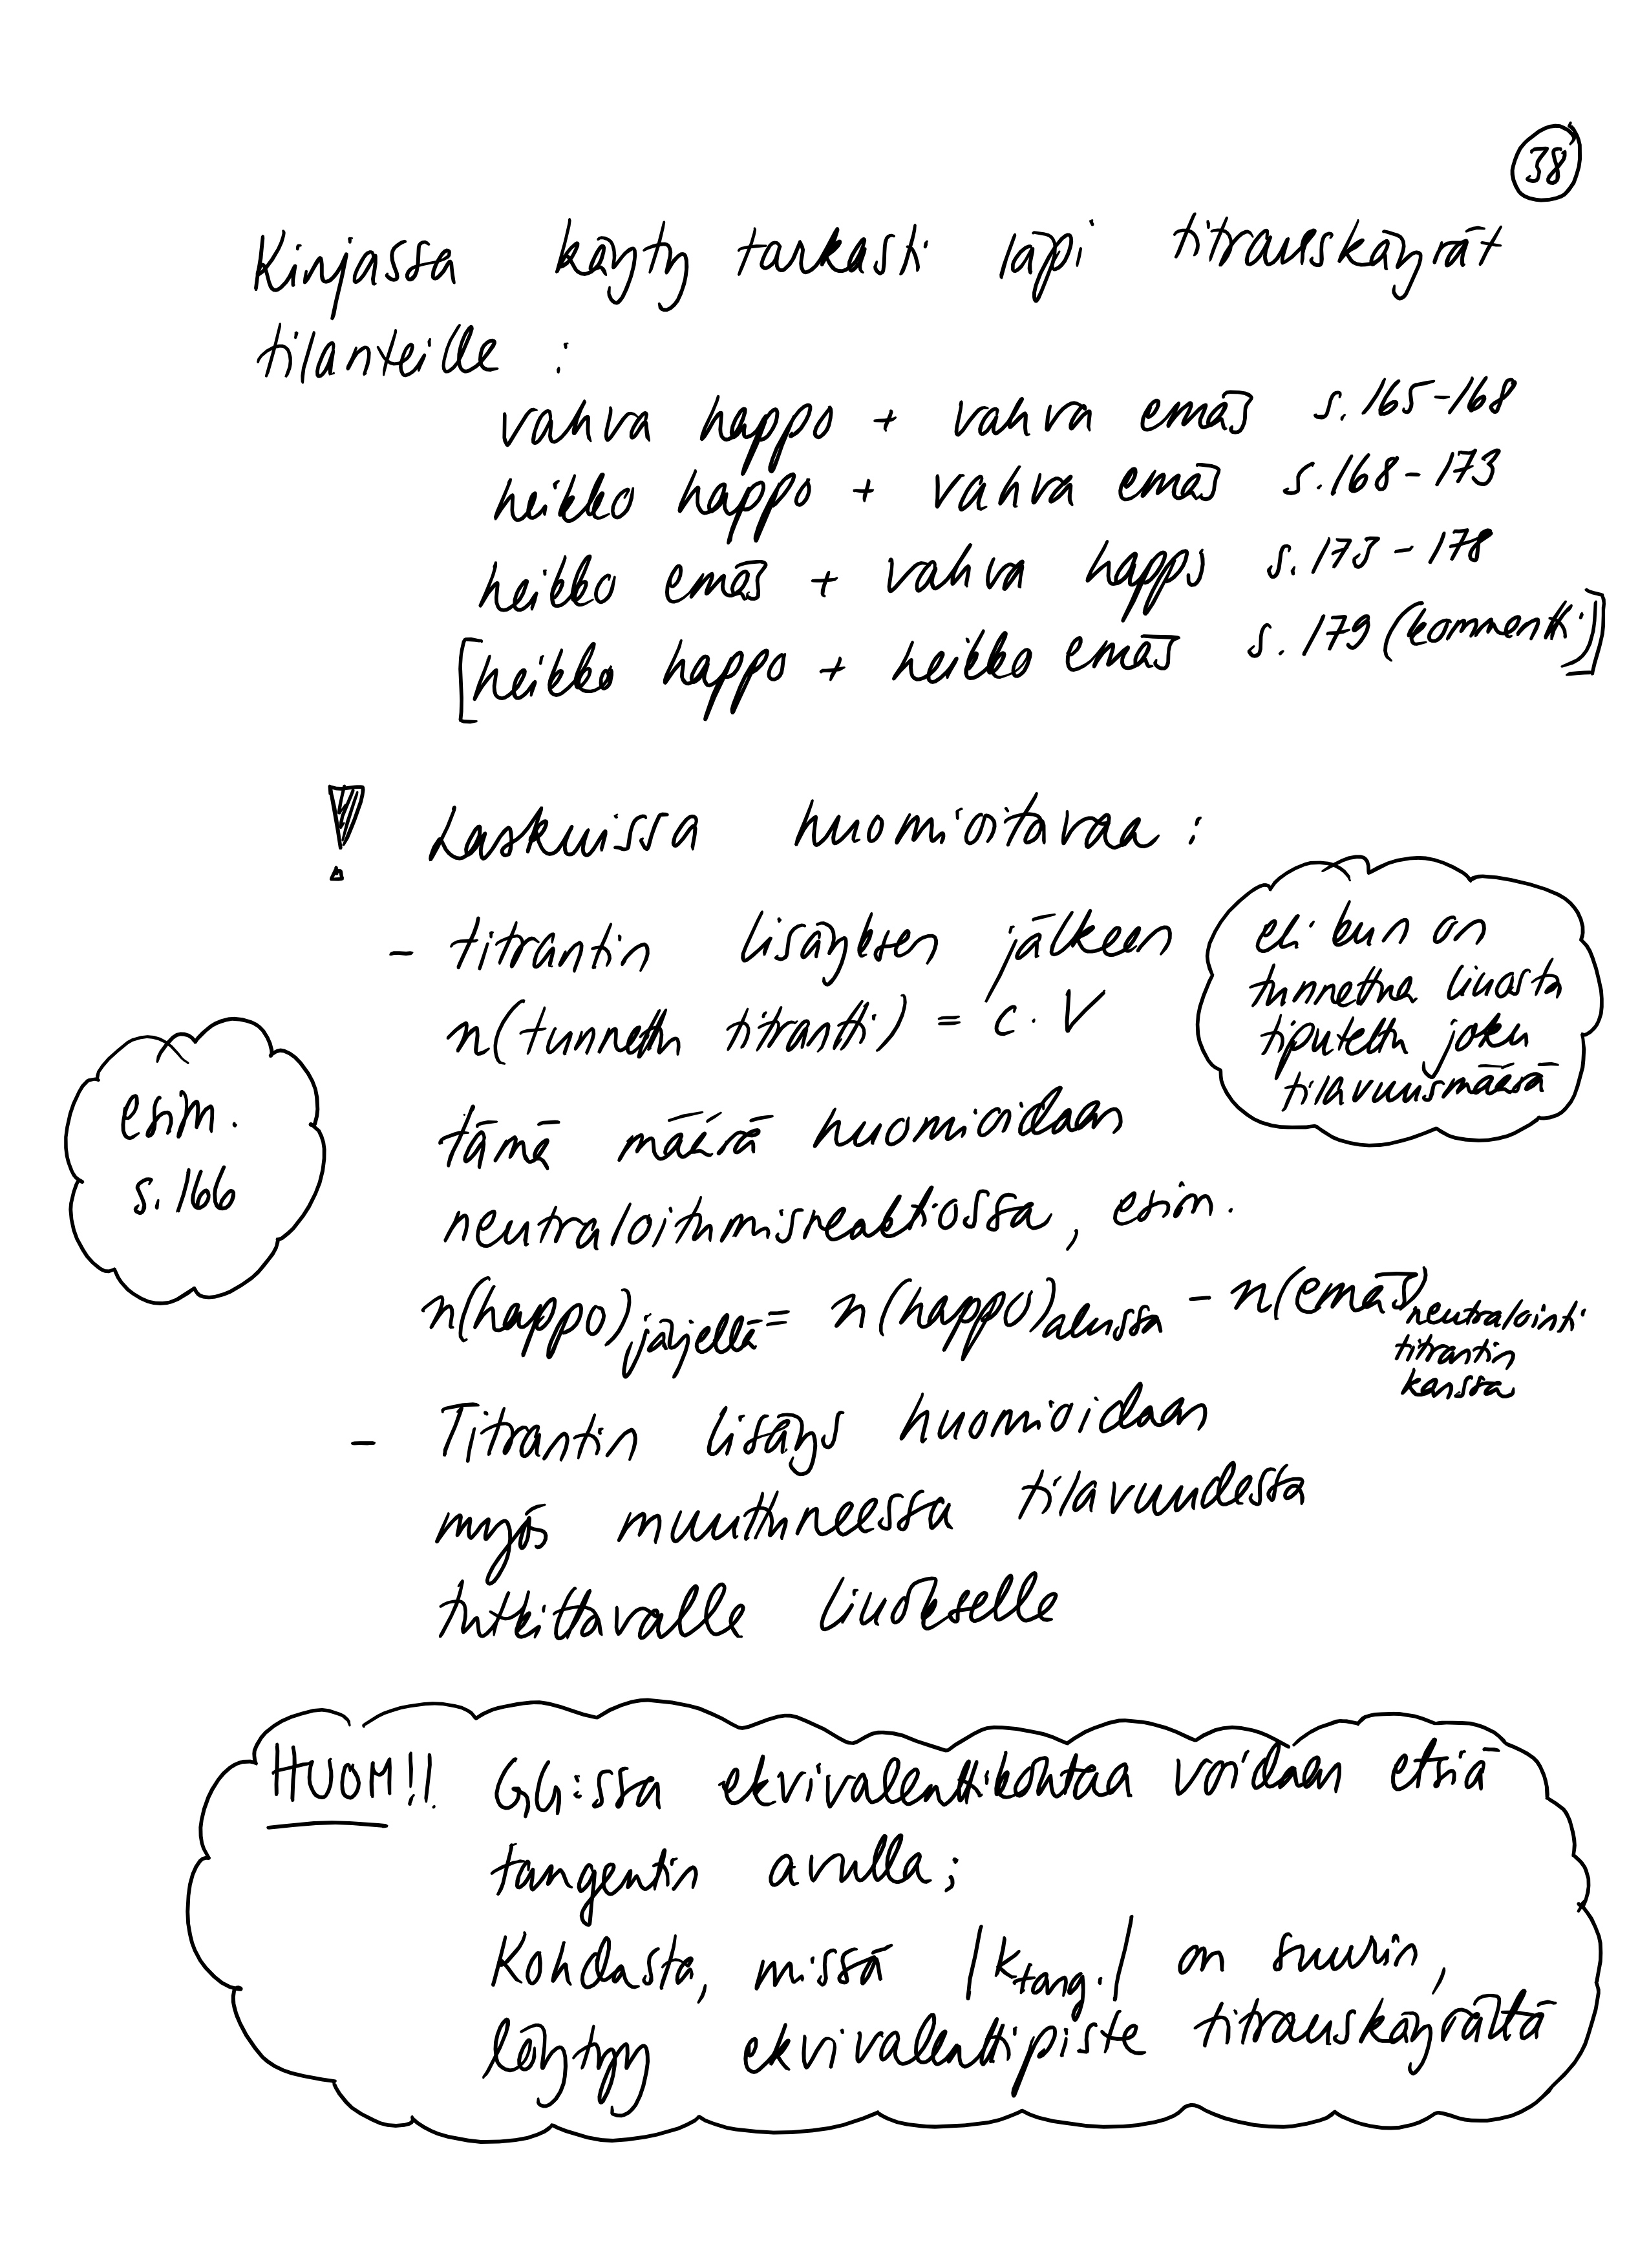 38
Kirjassa käyty tarkasti läpi titrauskäyrät
tilanteille :
vahva happo + vahva emäs s. 165-168
heikko happo + vahva emäs s. 168-173
heikko emäs + vahva happo s. 173-178
[heikko happo + heikko emäs s. 179 (kommentti)]
! Laskuissa huomioitavaa :
- titrantin lisäyksen jälkeen
n(tunnettu titrantti) = c · V
eli kun on
tunnettua liuosta
tiputettu joku
tilavuusmäärä
esim.
s. 166
tämä määrä huomioidaan
neutraloitumisreaktiossa, esim.
n(happo)jäljellä = n(happo)alussa - n(emäs)neutralointi
titrantin
kanssa
- Titrantin lisäys huomioidaan
myös muuttuneessa tilavuudessa
tutkittavalle liuokselle
HUOM!! GG:ssa ekvivalenttikohtaa voidaan etsiä
tangentin avulla;
Kohdasta, missä |ktang.| on suurin,
löytyy ekvivalenttipiste titrauskäyrältä